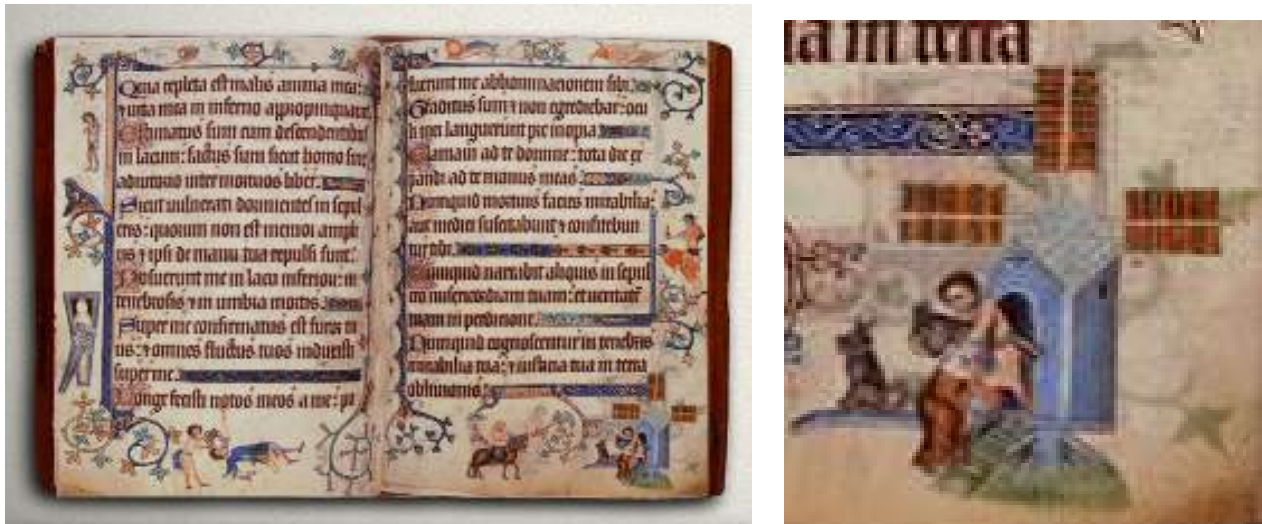 Quia repleta est malis anima mea:
⁊ uita mea in inferno appropinquauit
Estimatus sum cum descendentibus
in lacum: factus sum sicut homo sine
adiutorio inter mortuos liber.
Sicut uulnerati dormientes in sepul
cris: quorum non est memor ampli
us ⁊ ipsi de manu tua repulsi sunt.
Posuerunt me in lacu inferiori: in
tenebrosis ⁊ in umbra mortis.
Super me confirmatus est furor tu
us: ⁊ omnes fluctus tuos induxisti
super me.
Longe fecisti notos meos a me: po
suerunt me abhominacionem sibi.
Traditus sum ⁊ non egrediebar: ocu
li mei languerunt pre inopia
Clamaui ad te domine: tota die ex
pandi ad te manus meas.
Nunquid mortuis facies mirabilia:
aut medici suscitabunt ⁊ confitebun
tur tibi.
Nunquid narrabit aliquis in sepul
cro misericordiam tuam: et ueritatem
tuam in perdicione.
Nunquid cognoscentur in tenebris
mirabilia tua: ⁊ iusticia tua in terra
obliuionis.
ua in terra